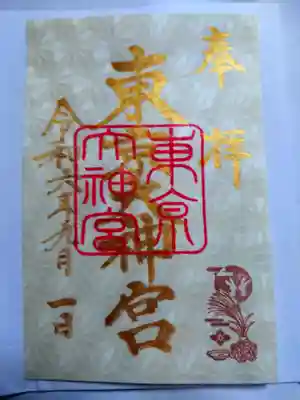 奉拝
東京大神宮
令和六年九月一日
東京
大神宮